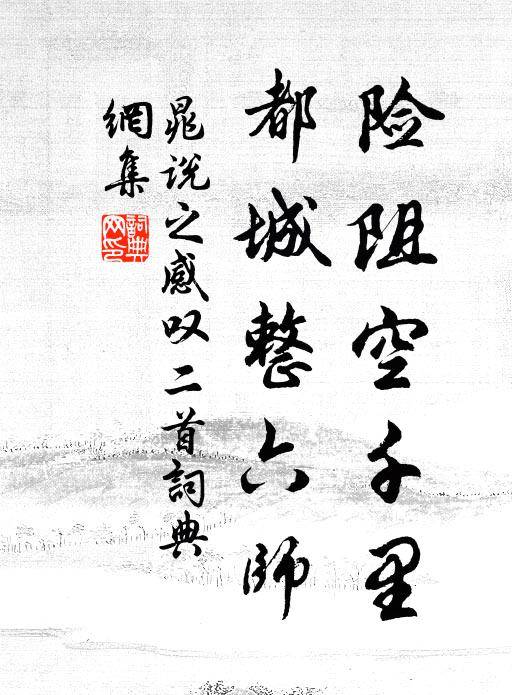 险阻空千里
都城整六师
晁说之感叹二首詞典
網集
詞典網印